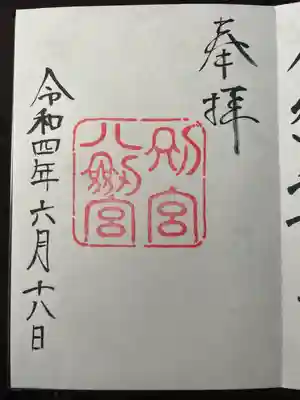 奉拝
別宮
八剱宮
令和四年六月十八日